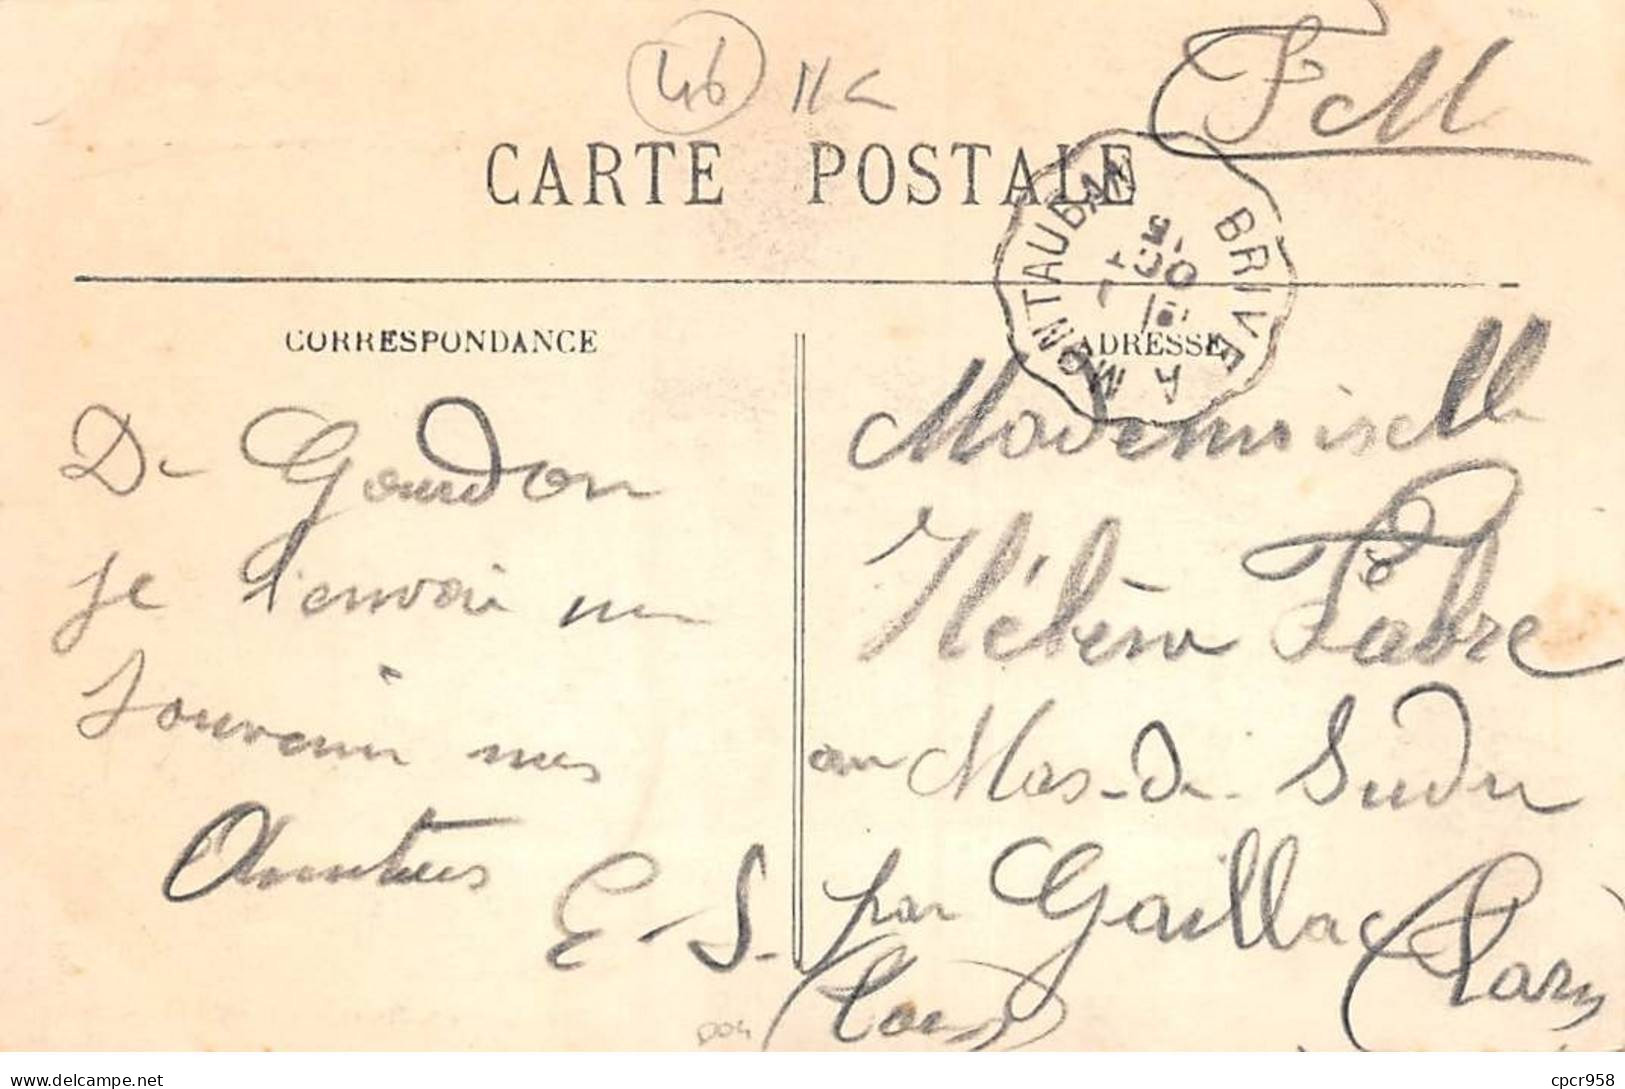 46
F M
CARTE POSTALE
BRIVE A MONTAUBAN
15
OCT
CORRESPONDANCE
ADRESSE
De Gourdon
je t'envoie un
Souvenir mes
Amitiées
E. S.
Mademoiselle
Hélène Fabre
au Mas-de-Sudre
par Gaillac (Tarn)
(Tarn)
cpcr958